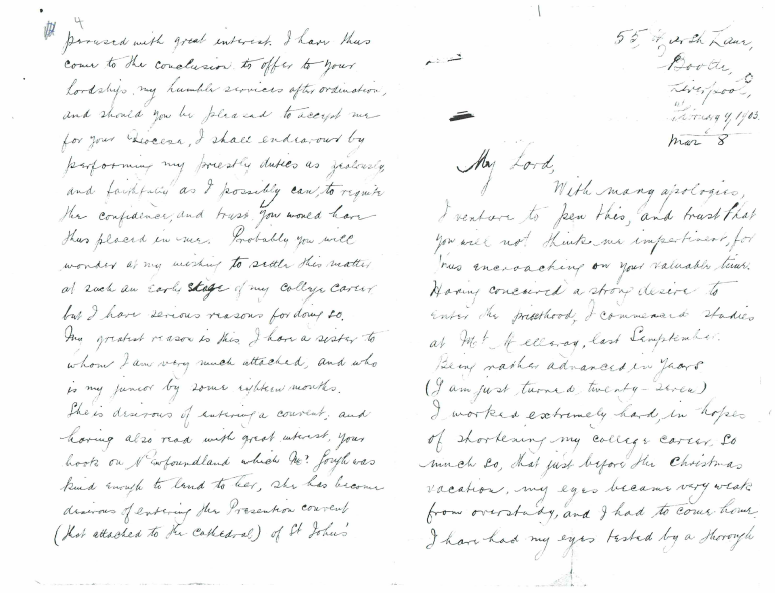 4
perused with great interest. I have thus
come to the conclusion to offer to your
lordship, my humble services after ordination,
and should you be pleased to accept me
for your Diocese, I shall endeavour by
performing my priestly duties as zealously,
and faithfully as I possibly can, to requite
the confidence, and trust you would have
thus placed in me. Probably you will
wonder at my wishing to settle this matter
at such an early stage of my college career
but I have serious reasons for doing so.
My greatest reason is this, I have a sister to
whom I am very much attached, and who
is my junior by some eighteen months.
She is desirous of entering a convent, and
having also read with great interest, your
book on Newfoundland which Mr. Gough was
kind enough to lend to her, she has become
desirous of entering the Presention convent
(that attached to the cathedral) of St John's
55, Lane,
Bootle,
Liverpool,
1903.
Mar 8
My Lord,
With many apologies,
I venture to pen this, and trust that
you will not think me impertinent, for
thus encroaching on your valuable time.
Having conceived a strong desire to
enter the priesthood, I commenced studies
at Mt Melleray, last Semptember.
Being rather advanced in years
(I am just turned twenty-seven)
I worked extremely hard, in hopes
of shortening my college career. So
much so, that just before the Christmas
vacation, my eyes became very weak
from overstudy, and I had to come home
I have had my eyes tested by a thorough